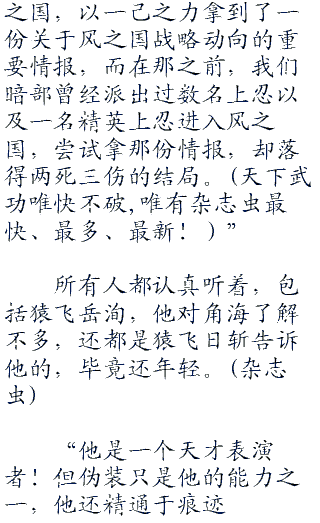 之国，以一己之力拿到了一
份关于风之国战略动向的重
要情报，而在那之前，我们
暗部曾经派出过数名上忍以
及一名精英上忍进入风之
国，尝试拿那份情报，却落
得两死三伤的结局。(天下武
功唯快不破,唯有杂志虫最
快、最多、最新！)”
所有人都认真听着，包
括猿飞岳洵，他对角海了解
不多，还都是猿飞日斩告诉
他的，毕竟还年轻。(杂志
虫)
“他是一个天才表演
者！但伪装只是他的能力之
一，他还精通于痕迹